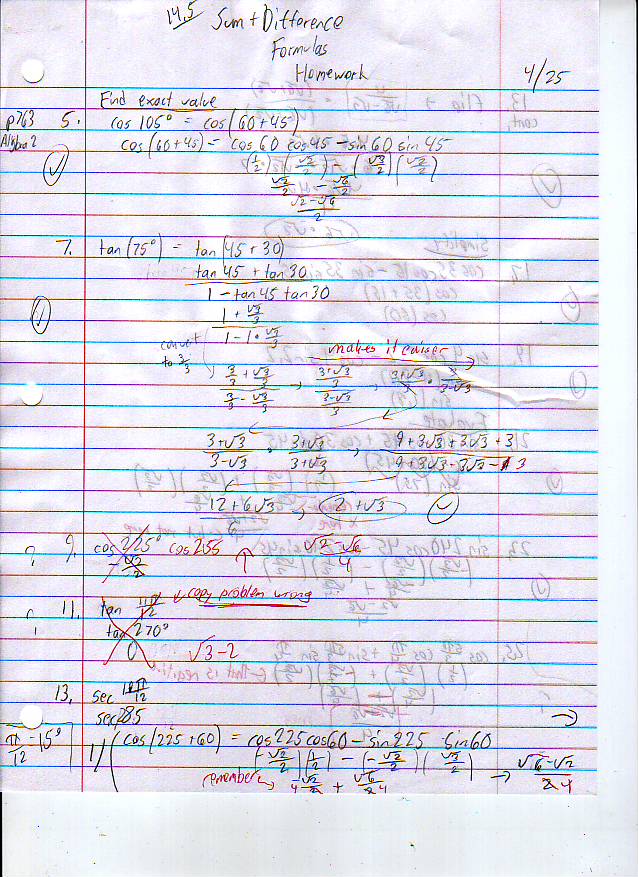 14.5 Sum + Difference
Formulas
Homework
4/25
Find exact value
p763 5. cos 105° = cos(60+45)
Algebra 2 cos(60+45) = cos 60 cos 45 - sin 60 sin 45
(1/2)(√2/2) - (√3/2)(√2/2)
√2/2 - √6/2
√2-√6/2
7. tan(75°) = tan(45+30)
tan 45 + tan 30
1 - tan 45 tan 30
1 + √3/3
1 - 1·√3/3
convert to 3/3
makes it easier
3/3 + √3/3 → 3+√3/3 , 3+√3/3 · 3/3-√3
3/3 - √3/3 3-√3/3
3+√3/3-√3 · 3+√3/3+√3 → 9+3√3+3√3+3/9+3√3-3√3-3
12+6√3/6 , 2+√3
? 9. cos 225° cos 255 √2-√6/4
-√2/2
copy problem wrong
? 11. tan 11π/12
tan 270°
0 √3-2
13. sec 19π/12
sec 285
π/12 = 15° 1/(cos(225+60) = cos 225 cos 60 - sin 225 sin 60
(-√2/2)(1/2) - (-√2/2)(√3/2)
remember → √2/4 + √6/4 → √6-√2/4